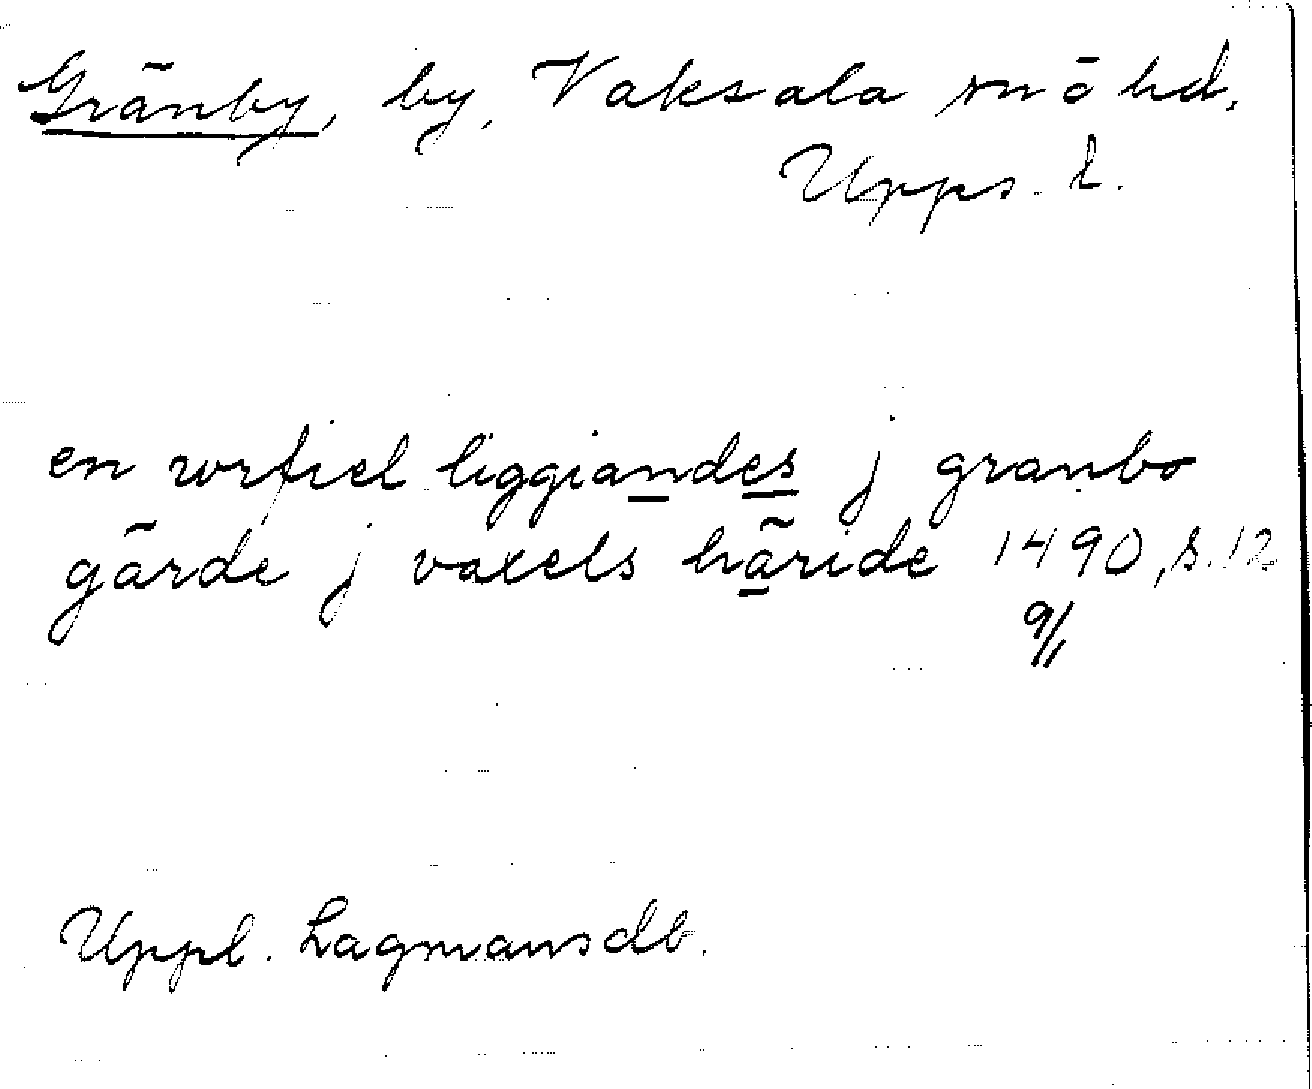 Gränby, by, Vaksala sn o hd,
Upps. l.
en wrfiel liggiandes j granbo
gärde j vaxels häride 1490, s. 12
9/11
Uppl. Lagmansdb.